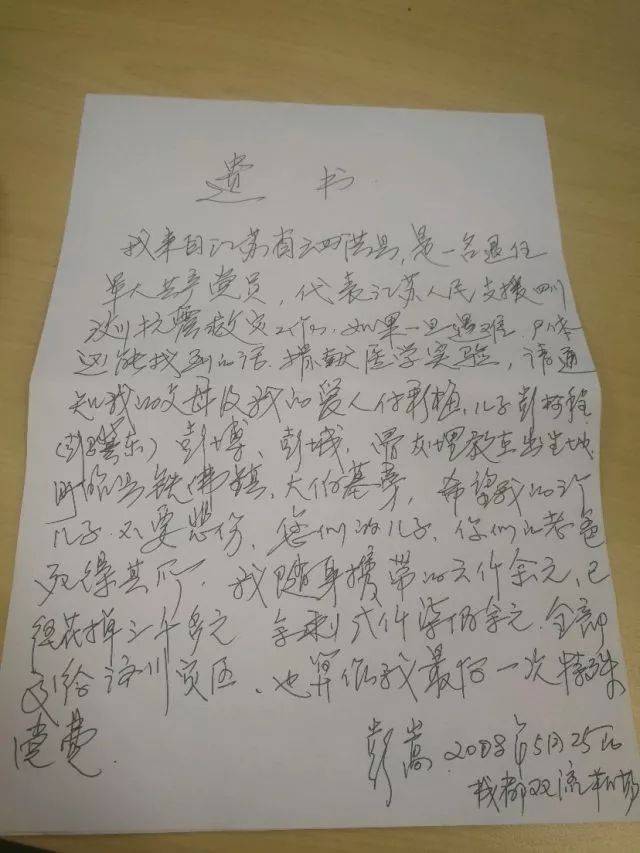 遗 书
我来自江苏省泗洪县,是一名退伍
军人共产党员,代表江苏人民支援四川
汶川抗震救灾工作,如果一旦遇难,尸体
还能找到的话.捐献医学实验,请通
知我的父母及我的爱人付彩梅,儿子彭
彭博、彭城,骨灰埋放在出生地
铁佛镇,大伯墓旁,希望我的
儿子不要悲伤,您们的儿子,你们的老爸
死得其所,我随身携带的六仟余元,已
经花掉三千多元 余剩弍仟柒佰余元.全部
给汶川灾区,也算做我最后一次特殊
党费.
彭嵩 2008年5月25日
成都双流机场